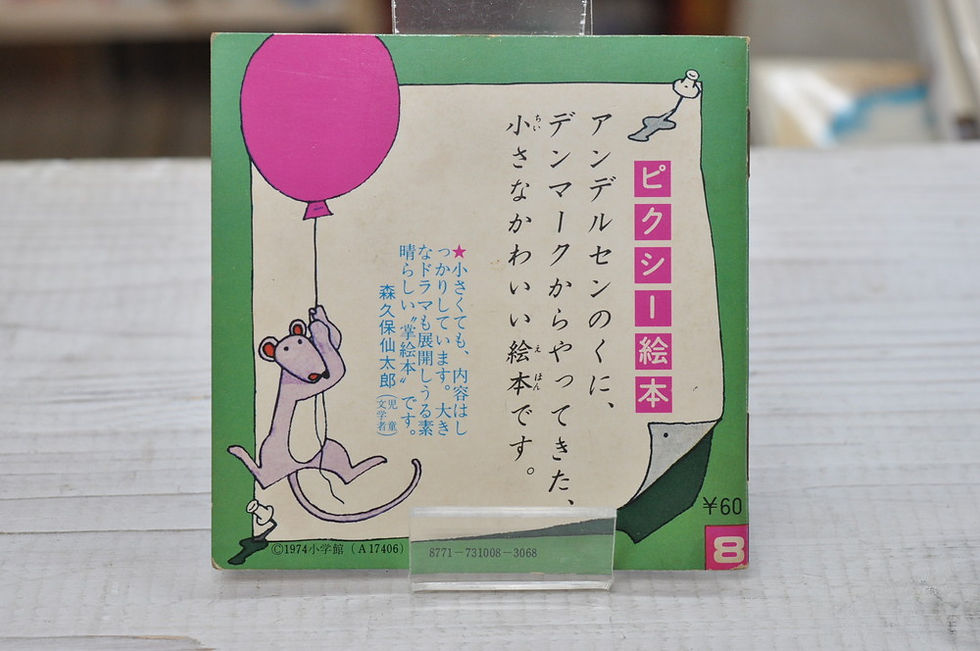 ピクシー絵本
アンデルセンのくに、
デンマークからやってきた、
小さなかわいい絵本です。
ちい
え ほん
★小さくても、内容はし
っかりしています。大き
なドラマも展開しうる素
晴らしい〝掌絵本〟です。
森久保仙太郎(児童文学者)
¥60
8
©1974小学館(A17406)
8771-731008-3068